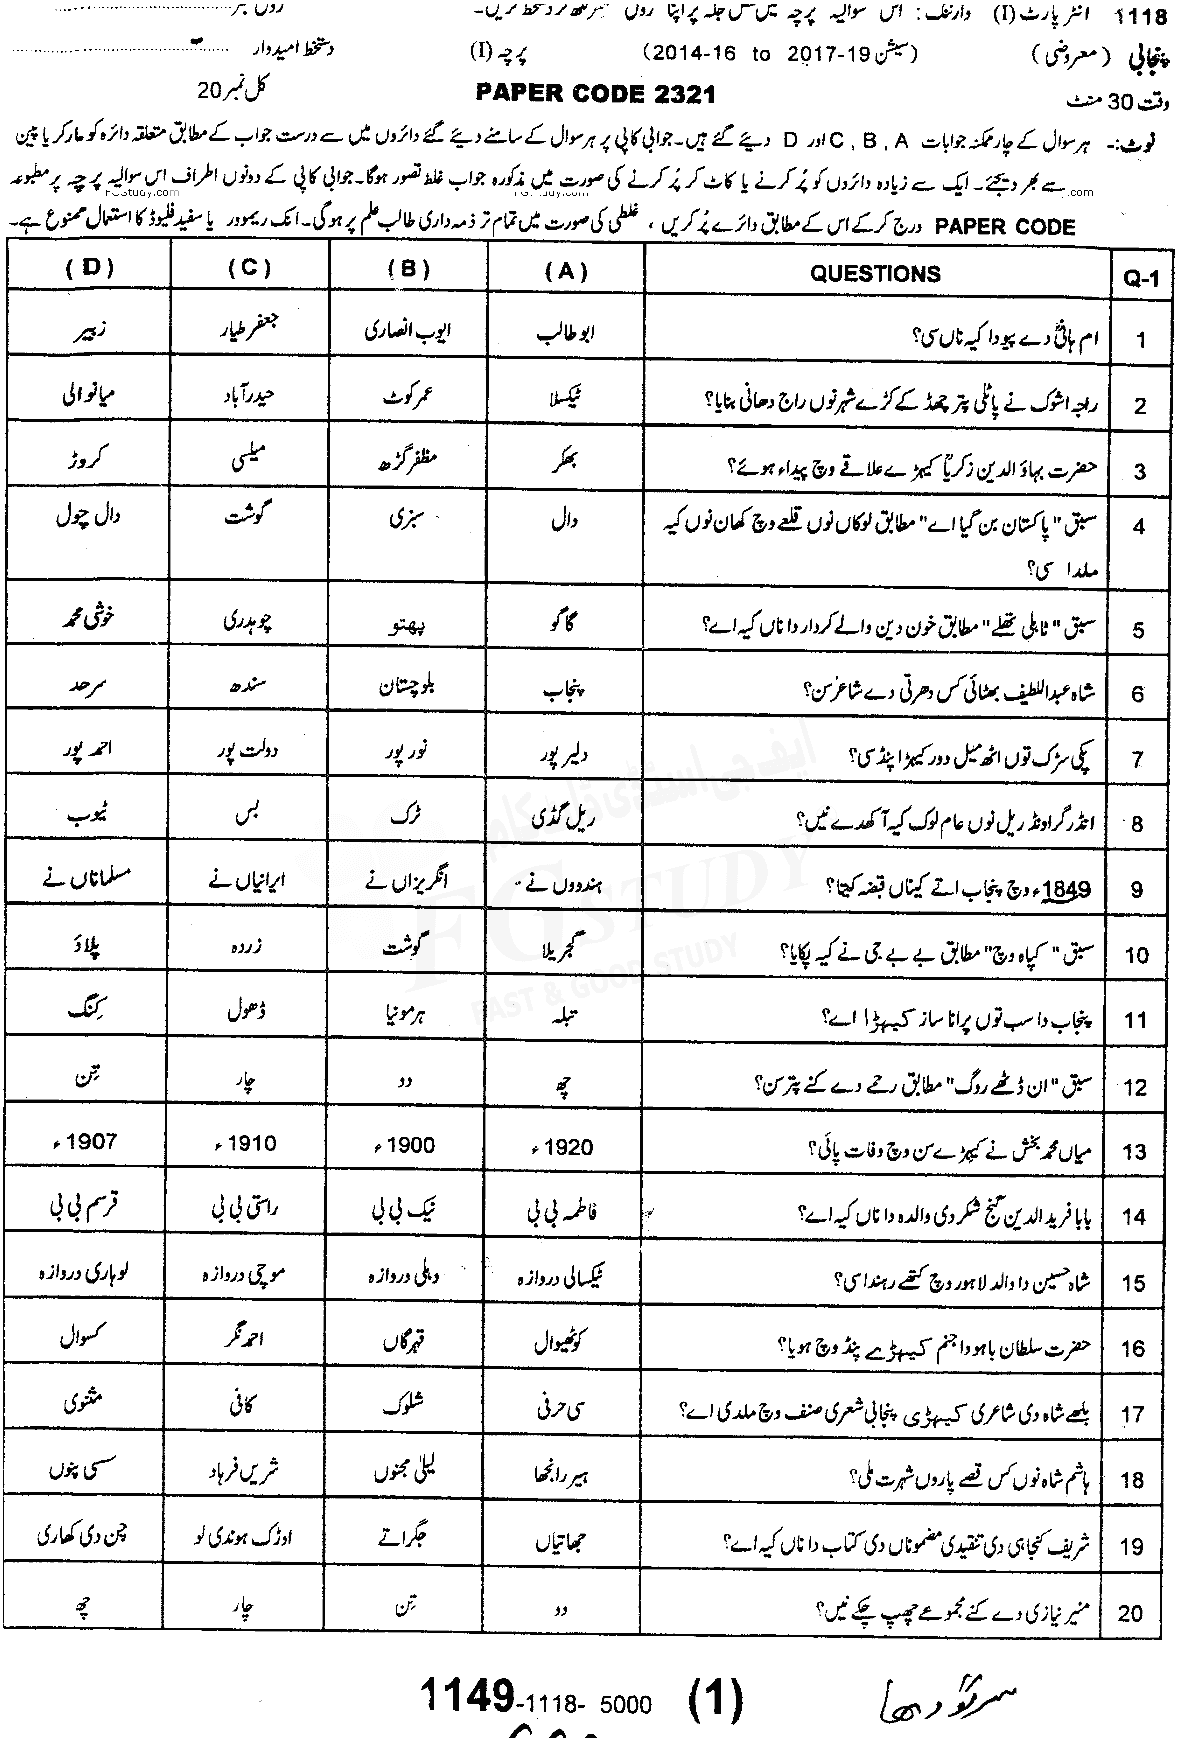 1118 انٹر پارٹ (I) وارننگ: اس سوالیہ پرچہ میں اس جگہ پر اپنا رول نمبر لکھ کر دستخط کریں۔ رول نمبر
پنجابی (معروضی) (سیشن 2014-16 to 2017-19) پرچہ (I) دستخط امیدوار
وقت 30 منٹ PAPER CODE 2321 کل نمبر 20
نوٹ:۔ ہر سوال کے چار ممکنہ جوابات A ، B ، C اور D دیئے گئے ہیں۔ جوابی کاپی پر ہر سوال کے سامنے دیئے گئے دائروں میں سے درست جواب کے مطابق متعلقہ دائرہ کو مارکر یا پین
سے بھر دیجئے۔ ایک سے زیادہ دائروں کو پُر کرنے یا کاٹ کر پُر کرنے کی صورت میں مذکورہ جواب غلط تصور ہوگا۔ جوابی کاپی کے دونوں اطراف اس سوالیہ پرچہ پر مطبوعہ
PAPER CODE درج کر کے اس کے مطابق دائرے پُر کریں ، غلطی کی صورت میں تمام تر ذمہ داری طالب علم پر ہوگی۔ انک ریمور یا سفید فلیوڈ کا استعمال ممنوع ہے۔
Q-1 QUESTIONS (A) (B) (C) (D)
1 ام ہانیؓ دے پیو دا کیہ ناں سی؟ ابو طالب ایوب انصاری جعفر طیار زبیر
2 راجہ اشوک نے پاٹلی پتر چھڈ کے کڑے شہر نوں راج دھانی بنایا؟ ٹیکسلا عمرکوٹ حیدرآباد میانوالی
3 حضرت بہاؤ الدین زکریاؒ کیہڑے علاقے وچ پیداء ہوئے؟ بھکر مظفرگڑھ میلسی کروڑ
4 سبق "پاکستان بن گیا اے" مطابق لوکاں نوں قلعے وچ کھان نوں کیہ دال سبزی گوشت دال چول
ملدا سی؟
5 سبق "ٹاہلی تھلے" مطابق خون دین والے کردار دا ناں کیہ اے؟ گاگو پھتو چوہدری خوشی محمد
6 شاہ عبداللطیف بھٹائی کس دھرتی دے شاعر سن؟ پنجاب بلوچستان سندھ سرحد
7 پکی سڑک توں اٹھ میل دور کیہڑا پنڈ سی؟ دلیر پور نور پور دولت پور احمد پور
8 انڈر گراونڈ ریل نوں عام لوک کیہ آکھدے نیں؟ ریل گڈی ٹرک بس ٹیوب
9 1849ء وچ پنجاب اتے کیناں قبضہ کیتا؟ ہندووں نے انگریزاں نے ایرانیاں نے مسلماناں نے
10 سبق "کپاہ وچ" مطابق بے بے جی نے کیہ پکایا؟ گجریلا گوشت زردہ پلاؤ
11 پنجاب دا سب توں پرانا ساز کیہڑا اے؟ تبلہ ہرمونیا ڈھول کِنگ
12 سبق "ان ڈٹھے روگ" مطابق رحمے دے کنے پتر سن؟ چھ دو چار تِن
13 میاں محمد بخش نے کیہڑے سن وچ وفات پائی؟ 1920ء 1900ء 1910ء 1907ء
14 بابا فرید الدین گنج شکر دی والدہ دا ناں کیہ اے؟ فاطمہ بی بی نیک بی بی راستی بی بی قرسم بی بی
15 شاہ حسین دا والد لاہور وچ کتھے رہندا سی؟ ٹیکسالی دروازہ دہلی دروازہ موچی دروازہ لوہاری دروازہ
16 حضرت سلطان باہو دا جنم کیہڑے پنڈ وچ ہویا؟ کوٹھیوال قہرگاں احمد نگر کسوال
17 بلھے شاہ دی شاعری کیہڑی پنجابی شعری صنف وچ ملدی اے؟ سی حرفی شلوک کافی مثنوی
18 ہاشم شاہ نوں کس قصے پاروں شہرت ملی؟ ہیر رانجھا لیلیٰ مجنوں شریں فرہاد سسی پنوں
19 شریف کنجاہی دی تنقیدی مضموناں دی کتاب دا ناں کیہ اے؟ جھاتیاں جگراتے اوڑک ہوندی لو چن دی کھاری
20 منیر نیازی دے کنے مجموعے چھپ چکے نیں؟ دو تِن چار چھ
1149-1118- 5000 (1) سرگودھا